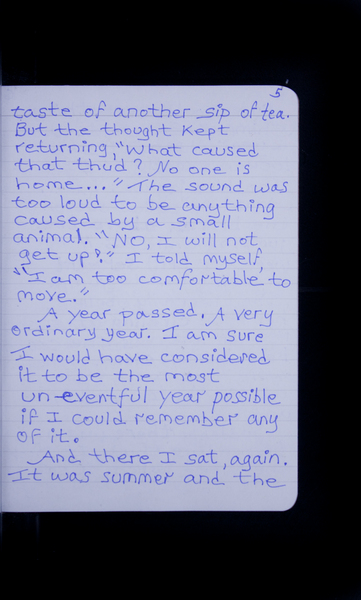 5
taste of another sip of tea.
But the thought kept
returning, "What caused
that thud? No one is
home..." The sound was
too loud to be anything
caused by a small
animal. "No, I will not
get up!" I told myself,
"I am too comfortable to
move."
A year passed. A very
ordinary year. I am sure
I would have considered
it to be the most
un-eventful year possible
if I could remember any
of it.
And there I sat, again.
It was summer and the